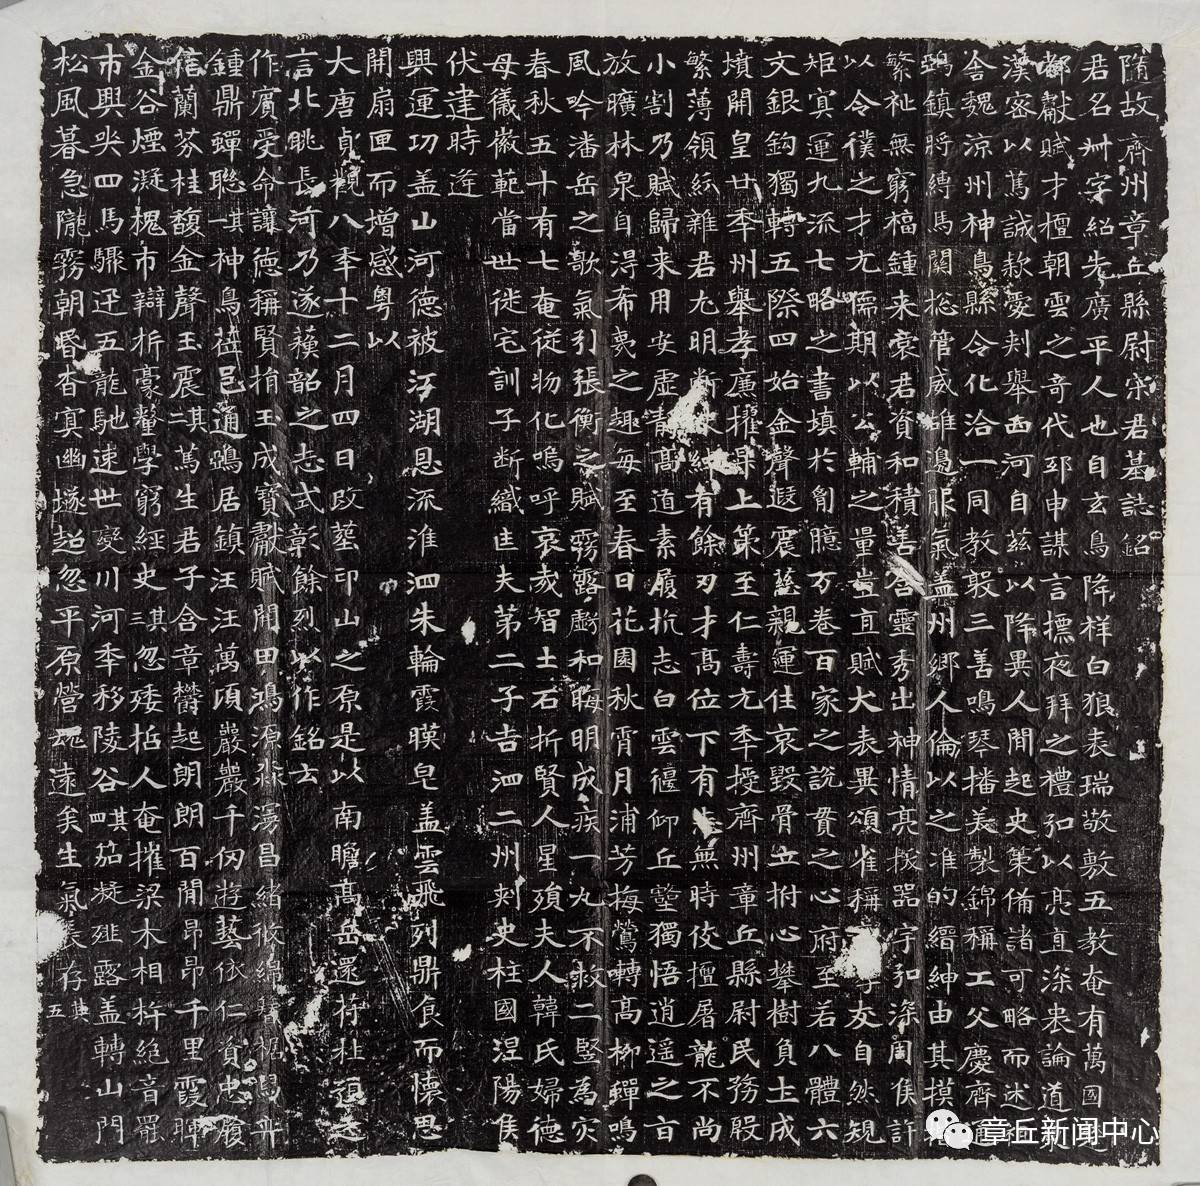 隋故齊州章丘縣尉宋君墓誌銘
君名州字紹先廣平人也自玄鳥降祥白狼表瑞敬敷五教奄有萬國
獻賦才檀朝雲之奇代邳申謀言摽夜拜之禮弘以亮直深衷論道
漢密以篤誠款愛刾舉西河自茲以降異人間起史策備諸可略而述
舍魏涼州神鳥縣令化洽一同教敷三善鳴琴播美製錦稱工父慶齊
鎮將縛馬關惣管威雄邊服氣盖州鄉人倫以之准的縉紳由其摸
繁祉無窮福鍾来裔君資和積善吞靈秀出神情亮拔器宇弘深周侯許
以令僕之才尤儒期以公輔之量豈直賦大表異頌雀稱 友自然規
矩寔運九流七略之書填於匈臆万卷百家之說貫之心府至若八體六
文銀鈎獨轉五際四始金聲遐震慈親運住哀毀骨立拊心攀樹負土成
墳開皇廿秊州舉孝廉擢 上第至仁壽元秊授齊州章丘縣尉民務殷
繁薄領紛雜君尤明斷 有餘刃才高位下有 無時伎擅屠龍不尚
小割乃賦歸来用安虛清高道素履抗志白雲偃仰丘壑獨悟逍遥之旨
放曠林泉自淂希夷之趣每至春日花園秋霄月浦芳梅鶯轉高柳蟬鳴
風吟潘岳之歌氣引張衡之賦霧露虧和晦明成疾一九不救二竪為灾
春秋五十有七奄従物化嗚呼哀㦲智士石折賢人星殞夫人韓氏婦德
母儀徽範當世徙宅訓子断織匡夫第二子吉泗二州刾史柱國涅陽侯
伏建時逢
興運功盖山河德被江湖恩流淮泗朱輪霞暎皂盖雲飛列鼎食而懷思
開扇匣而增感粤以
大唐貞觀八秊十二月四日改塟邙山之原是以南瞻高岳還符杜預之
言北眺長河乃遂蘓韶之志式彰餘烈以作銘云
作賓受命讓德稱賢捎玉成寳獻賦開田鴻源淼漭昌緒攸綿
鍾鼎蟬聯其一神鳥莅邑通鵶居鎮汪汪萬頃巖巖千仞遊藝依仁資忠履
信蘭芬桂馥金聲玉震其二篤生君子含章欝起朗朗百閒昂昂千里霞暉
金谷煙凝槐市辯析豪釐學窮經史其三忽矮喆人奄摧梁木相杵絶音罷
市興哭四馬驟还五龍馳速世變川河秊移陵谷其四笳凝 露盖轉山門
松風暮急隴霧朝昬杳寘幽燧超忽平原營魂遠矣生氣長存其五
章丘新闻中心